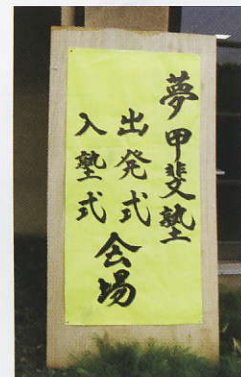 夢甲斐塾
出発式
入塾式
会場